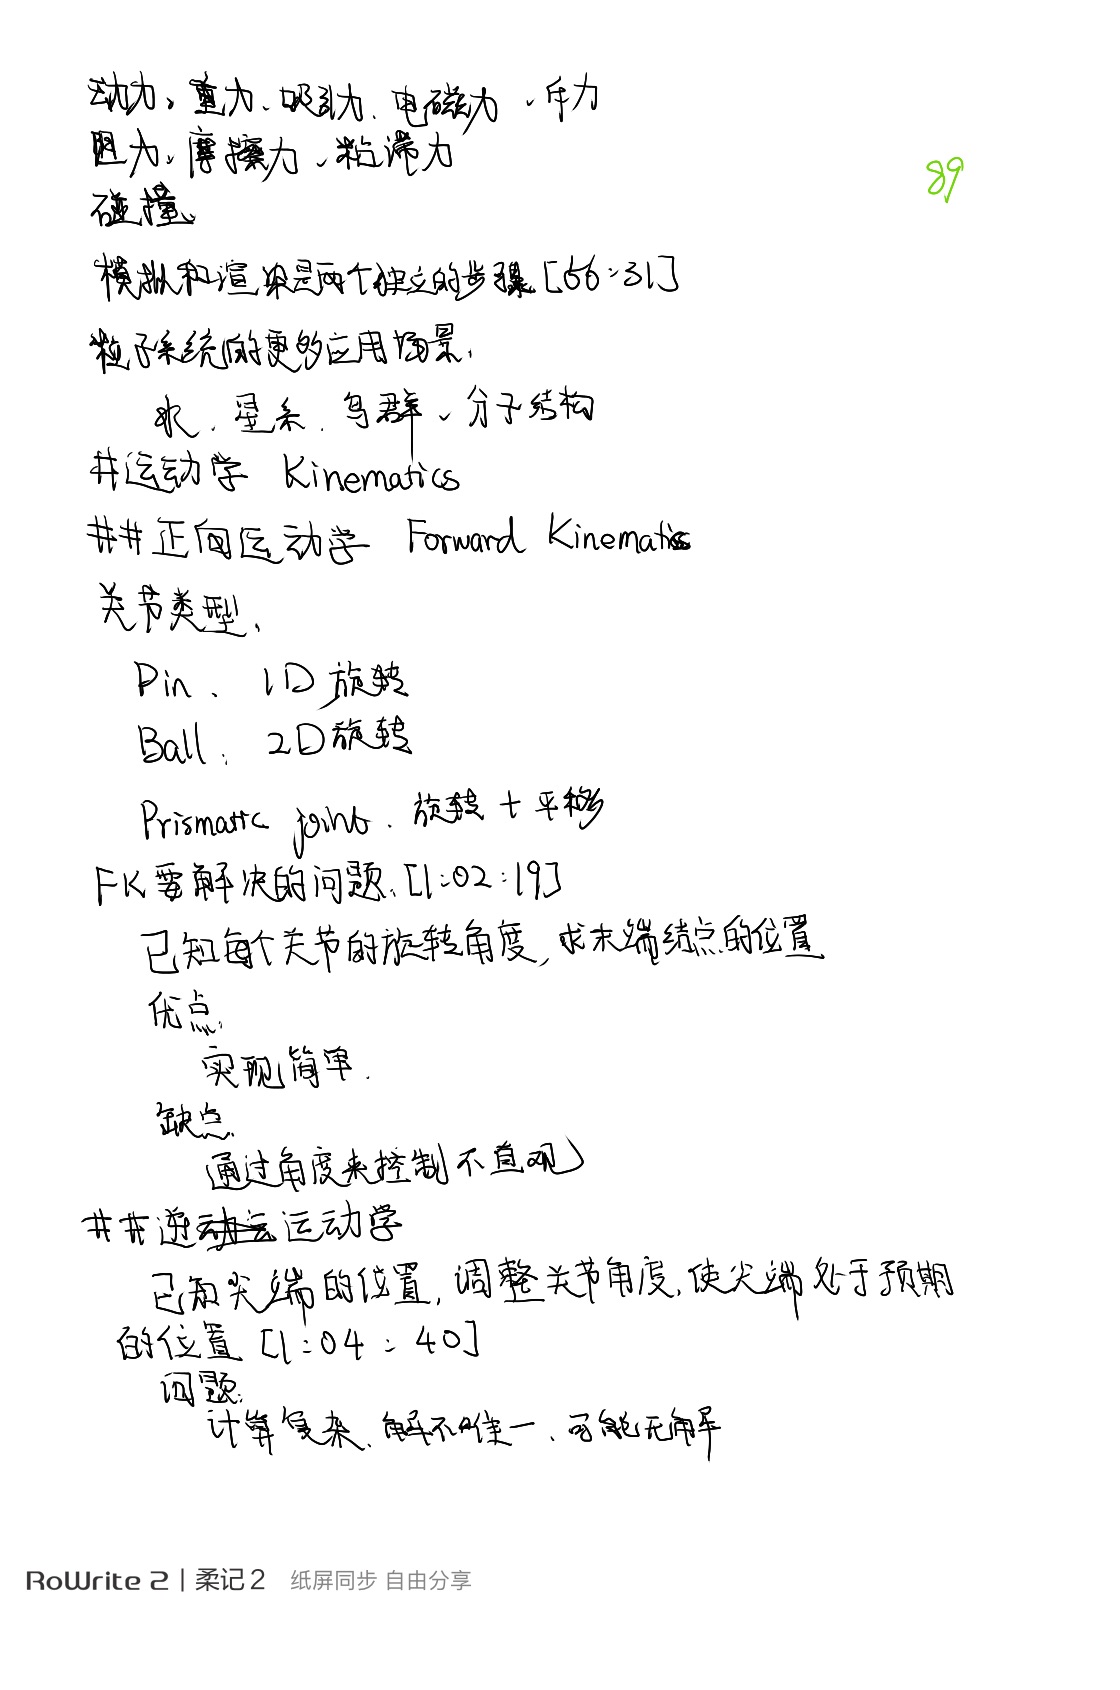 动力、重力、吸引力、电磁力、斥力
阻力、摩擦力、粘滞力
89
碰撞、
模拟和渲染是两个独立的步骤[56:31]
粒子系统的更多应用场景、
水、星系、鸟群、分子结构
#运动学 Kinematics
##正向运动学 Forward Kinematics
关节类型、
Pin、1D旋转
Ball、2D旋转
Prismatic joint、旋转+平移
FK要解决的问题、[1:02:19]
已知每个关节的旋转角度,求末端结点的位置
优点、
实现简单.
缺点、
通过角度来控制不直观
##逆运动学
已知尖端的位置,调整关节角度,使尖端处于预期
的位置[1:04:40]
问题:
计算复杂、解不唯一、可能无解
RoWrite 2 | 柔记2 纸屏同步 自由分享